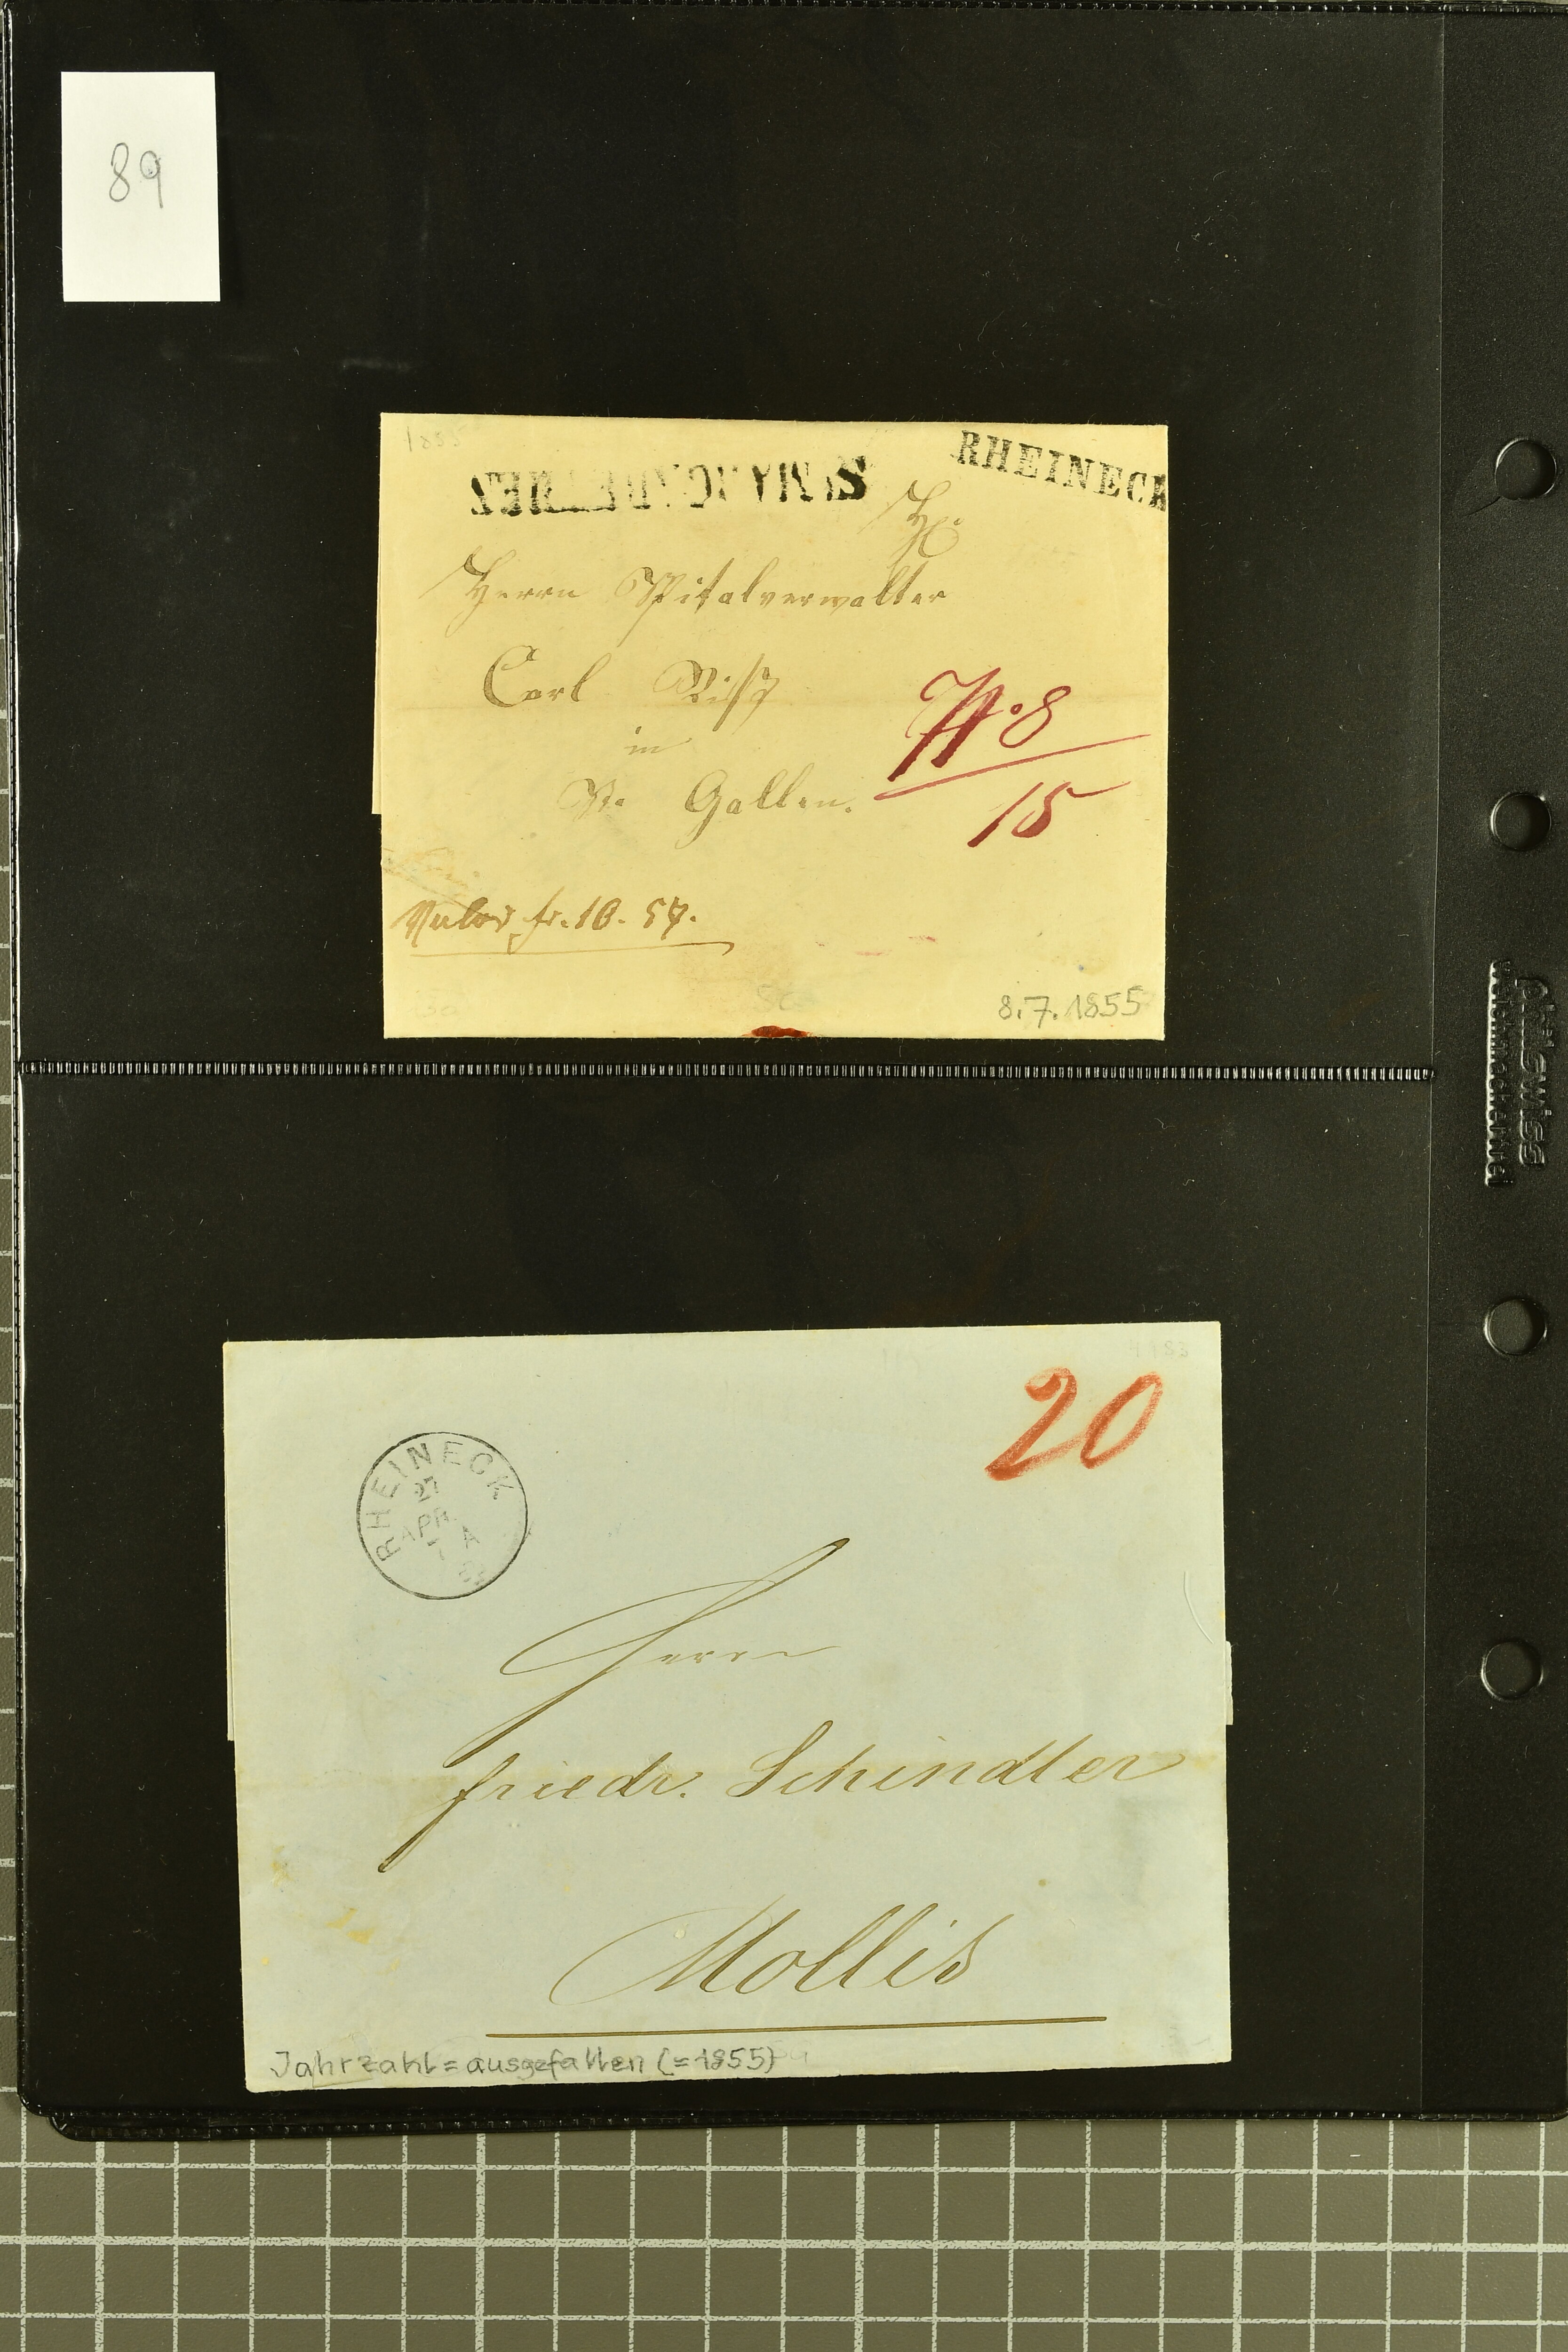 89
1855
S. MARGARETHEN
RHEINECK
Herrn Spitalverwalter
Carl
in
St. Gallen.
No. 8
15
fr. 10. 57.
8.7.1855
philswiss
20
RHEINECK
27
APR
A
Herrn
Friedr. Schindler
Mollis
Jahrzahl = ausgefallen (=1855)